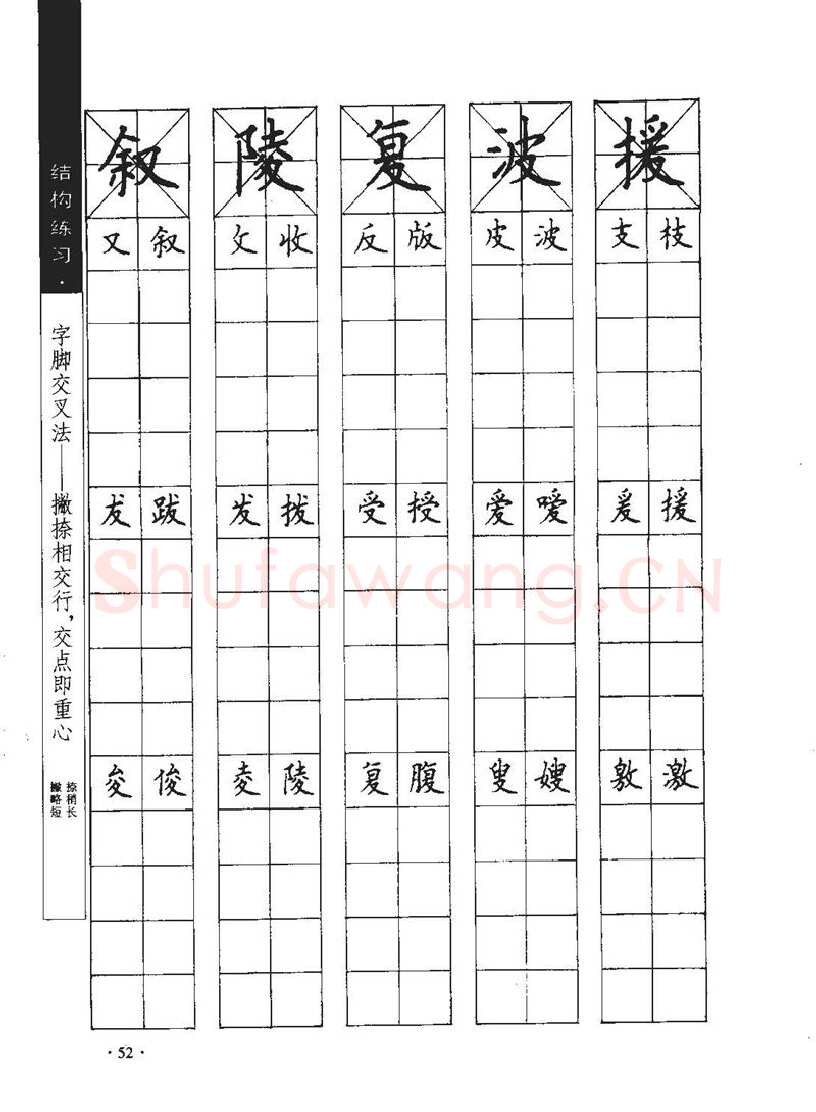 结构练习·
字脚交叉法——撇捺相交行，交点即重心
捺稍长
撇略短
叙 陵 复 波 援
又 叙 攵 收 反 版 皮 波 支 枝
犮 跋 发 拨 受 授 爱 嗳 爰 援
夋 俊 夌 陵 复 腹 叟 嫂 敫 激
Shufawang.CN
·52·